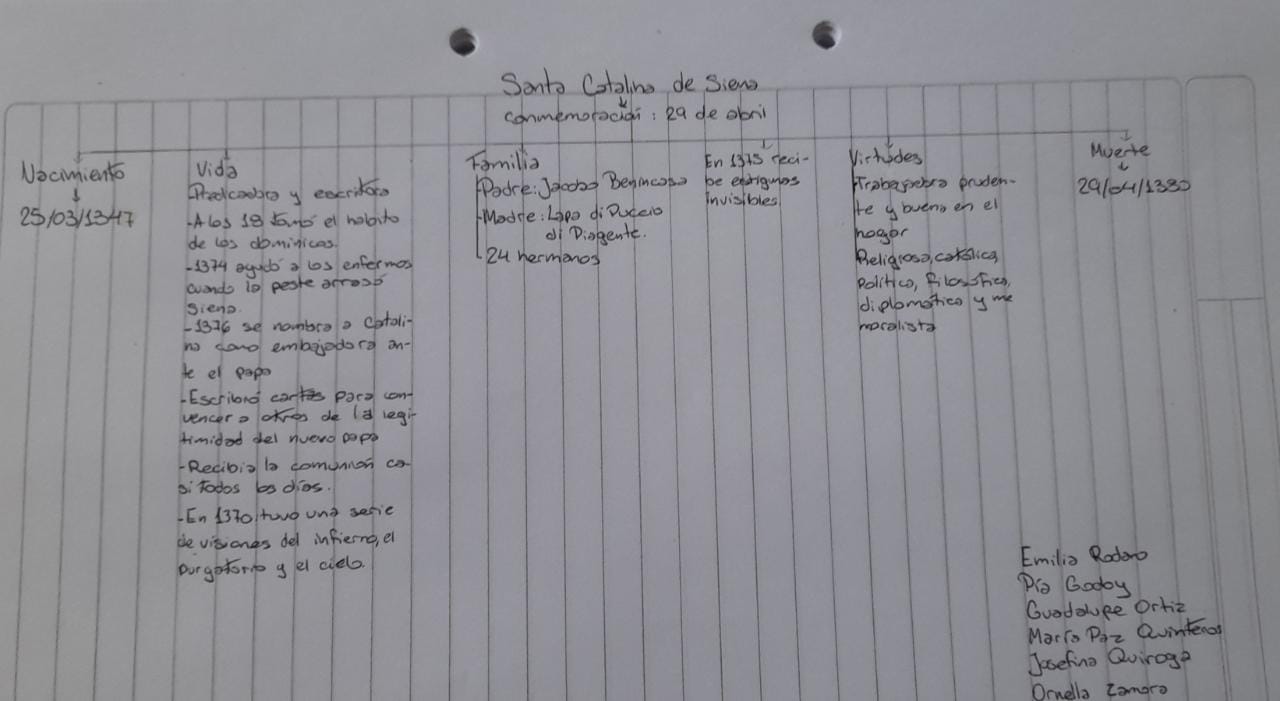 Santa Catalina de Siena
conmemoración : 29 de abril
Nacimiento
25/03/1347
Vida
-Predicadora y escritora
-A los 18 tomó el habito
de los dominicos.
-1374 ayudó a los enfermos
cuando la peste arrasó
Siena.
-1376 se nombra a Catali-
na como embajadora an-
te el papa
-Escribió cartas para con-
vencer a otros de la legi-
timidad del nuevo papa
-Recibia la comunión ca-
si todos los días.
-En 1370 tuvo una serie
de visiones del infierno, el
purgatorio y el cielo.
Familia
Padre: Jacobo Benincasa
Madre: Lapa di Puccio
di Piagente.
24 hermanos
En 1375 reci-
be estigmas
invisibles.
Virtudes
Trabajadora pruden-
te y buena en el
hogar
Religiosa, católica,
política, filosófica,
diplomática y me
moralista
Muerte
29/04/1380
Emilia Rodaro
Pía Godoy
Guadalupe Ortiz
María Paz Quinteros
Josefina Quiroga
Ornella Zamora